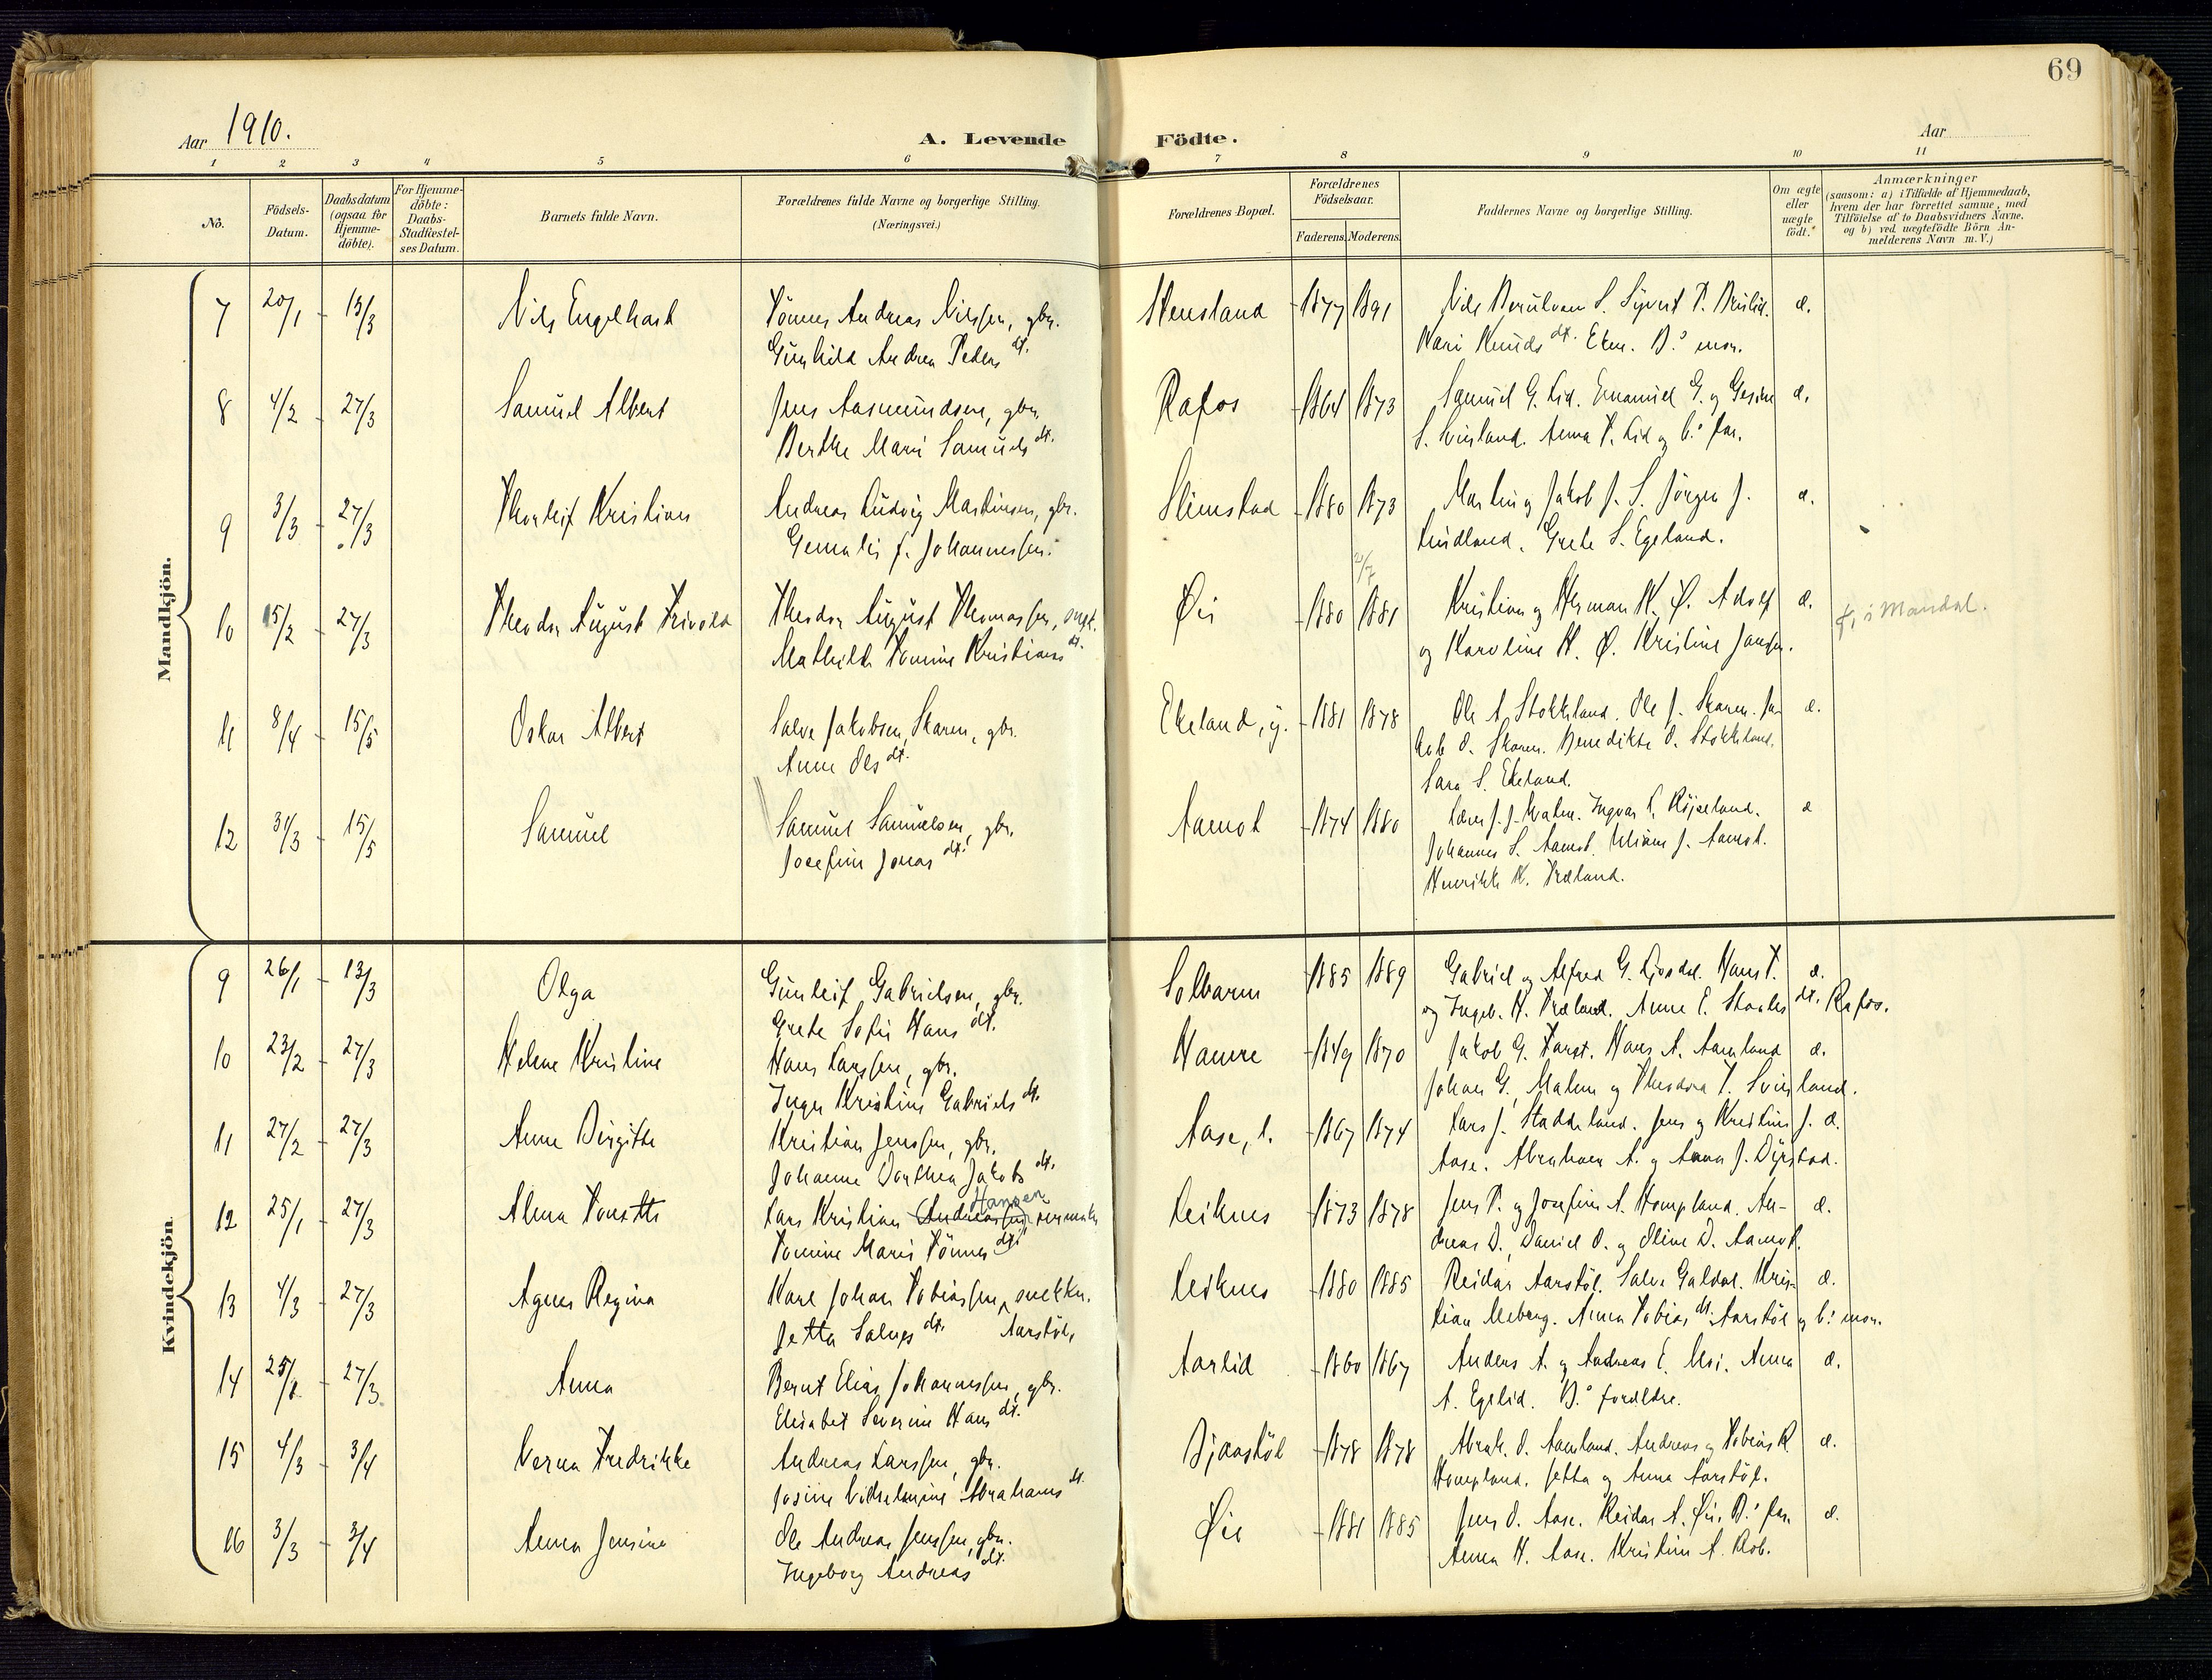 69
Aar 1910.
A. Levende Födte.
Aar
1 2 3 4 5 6 7 8 9 10 11
No.
Födsels-
Datum.
Daabsdatum
(ogsaa for
Hjemme-
döbte).
For Hjemme-
döbte:
Daabs-
Stadfæstel-
ses Datum.
Barnets fulde Navn.
Forældrenes fulde Navne og borgerlige Stilling.
(Næringsvei.)
Forældrenes Bopæl.
Forældrenes
Födselsaar.
Faderens. Moderens.
Faddernes Navne og borgerlige Stilling.
Om ægte
eller
uægte
födt.
Anmærkninger
(saasom: a) i Tilfælde af Hjemmedaab,
hvem der har forrettet samme, med
Tilföielse af to Daabsvidners Navne,
og b) ved uægtefödte Börn An-
melderens Navn m.V.)
Mandkjön.
7 20/1 - 13/3 Nils Engelhart Tönnes Andreas Nilssen, gbr. Stensland 1877 1891 Nils
Gunhild Andrea Peders dt. Kari Knuds dt. Eken. B.s mor.
8 4/2 - 27/3 Samuel Albert Jens Aasmundsen, gbr. Rafos 1864 1873 Samuel G. Lid. Emanuel G. og Gesine æ.
Berthe Marie Samuels dt. S. Svinland. Anna T. Lid og b.s far.
9 3/3 - 27/3 Thorleif Kristian Andreas Ludvig Martinsen, gbr. Slimstad 1880 1873 Martin og Jakob J. S. Jörgen J. æ.
f. Johannessen. Lindland. Grete S. Egeland.
2/7
10 15/2 - 27/3 Theodor August Theodor August Thomassen, Øie 1880 1881 Kristian og Herman K. Ø. Adolf æ. f. i Mandal.
Mathilde Tomine Kristians dt. og Karoline K. Ø. Kristine Jansen.
11 8/4 - 15/5 Oskar Albert Salve Jakobsen, Skaren, gbr. Ekeland, y. 1881 1878 Ole A. Stokkeland. Ole J. Skaren. Ja- æ.
Anne Ols dt. kob O. Skaren. Benedikte O. Stokkeland.
Sara S. Ekeland.
12 31/3 - 15/5 Samuel Samuel Samuelsen, gbr. Aamot 1874 1880 Ingvar Röiseland. æ
Josefine Jonas dt. Johannes S. Aamot. J. Aamot.
Henrikke K. Træland.
Kvindekjön
9 26/1 - 13/3 Olga Gunleif Gabrielsen, gbr. Solbaren 1885 1889 Gabriel og Alfred G. Hans T. æ.
Grete Sofie Hans dt. og Ingeb. H. Træland. Anne E. dt. Rafos.
10 23/2 - 27/3 Helene Kristine Hans Larssen, gbr. Hamre 1849 1870 Jakob G. Hans A. Aamland æ.
Inger Kristine Gabriels dt. Johan G., Malene og Theodora T. Svinland.
11 27/2 - 27/3 Anne Birgitte Kristian Jenssen, gbr. Aase, l. 1867 1874 Lars J. Staddeland. Jens og Kristine J. æ.
Johanne Dorthea Jakobs dt. Aase. Abraham A. og Anna J. Dyrstad.
Hansen
12 25/1 - 27/3 Alma Lars Kristian Andreassen, Leiknes 1873 1878 Jens T. og Josefine A. Hompland. An- æ.
Tomine Marie Tönnes dt. dreas D., Daniel O. og Oline D. Aamot.
13 4/3 - 27/3 Agnes Regina Karl Johan Tobiassen, snekker. Leiknes 1880 1885 Reidar Aarstöl. Salve Galdal. Kris- æ.
Jetta Salves dt. Aarstöl, tian Meberg. Anna Tobias dt. Aarstöl og b.s mor.
14 27/3 Anna Bernt Elias Johannessen, gbr. Aarlid 1860 1867 Anders A. og Andreas E. Anna æ.
Elisabet Severine Hans dt. A. Egelid. B.s forældre.
15 4/3 - 3/4 Verna Fredrikke Andreas Larssen, gbr. 1878 1878 Abrah. O. Aamland. Andreas og Tobias R. æ.
Josine Vilhelmine Abrahams dt. Hompland. Jetta og Anna Aarstöl.
16 3/3 - 3/4 Anna Jensine Ole Andreas Jenssen, gbr. Øie 1881 1885 Jens O. Aase. Reidar A. Øie. B.s far. æ.
Ingeborg Andreas dt. Anna H. Aase. Kristine A. Rob.